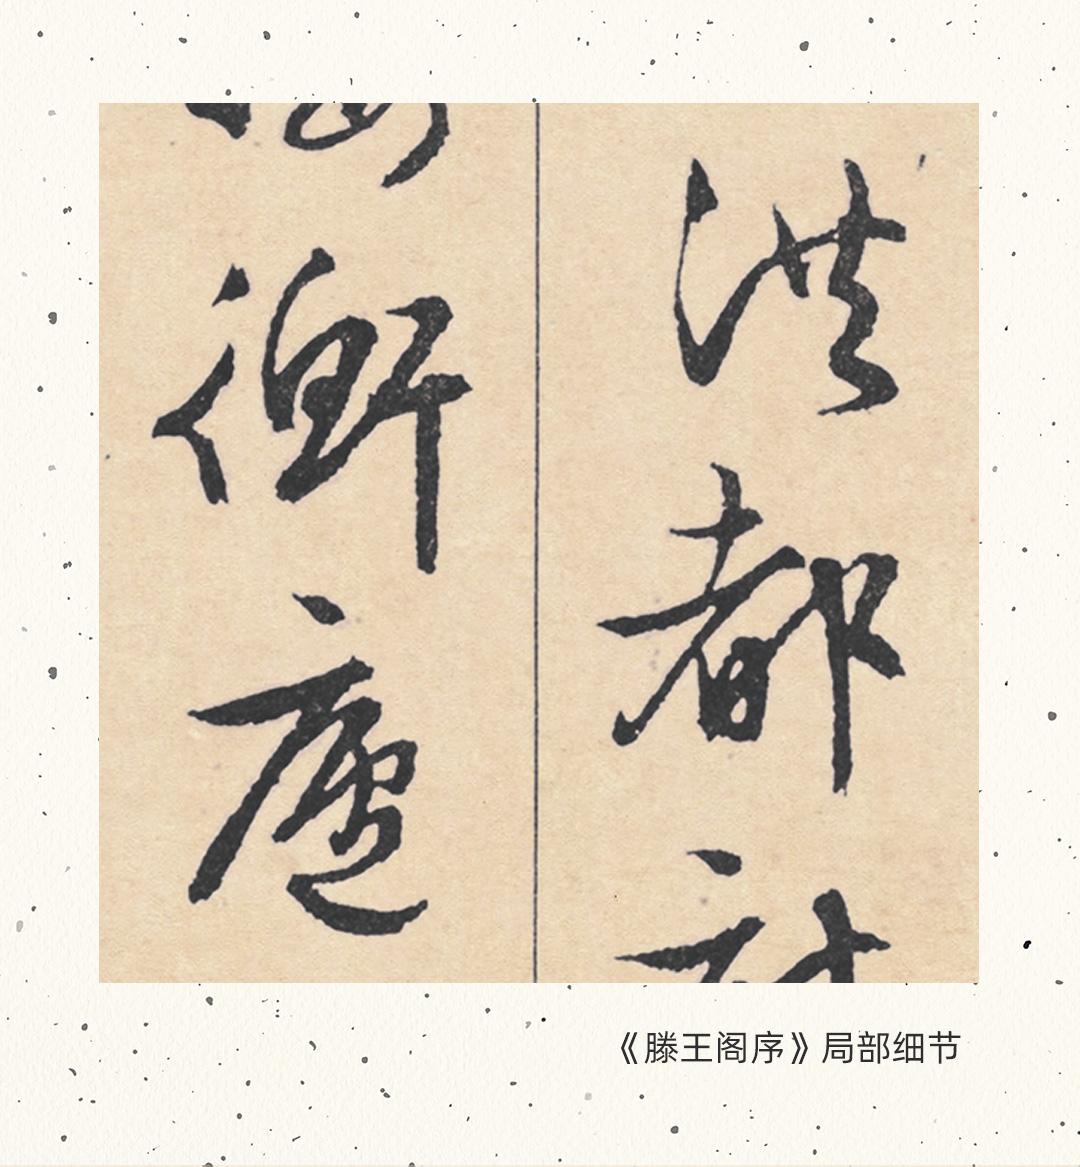 洪都
衡廬
《滕王阁序》局部细节